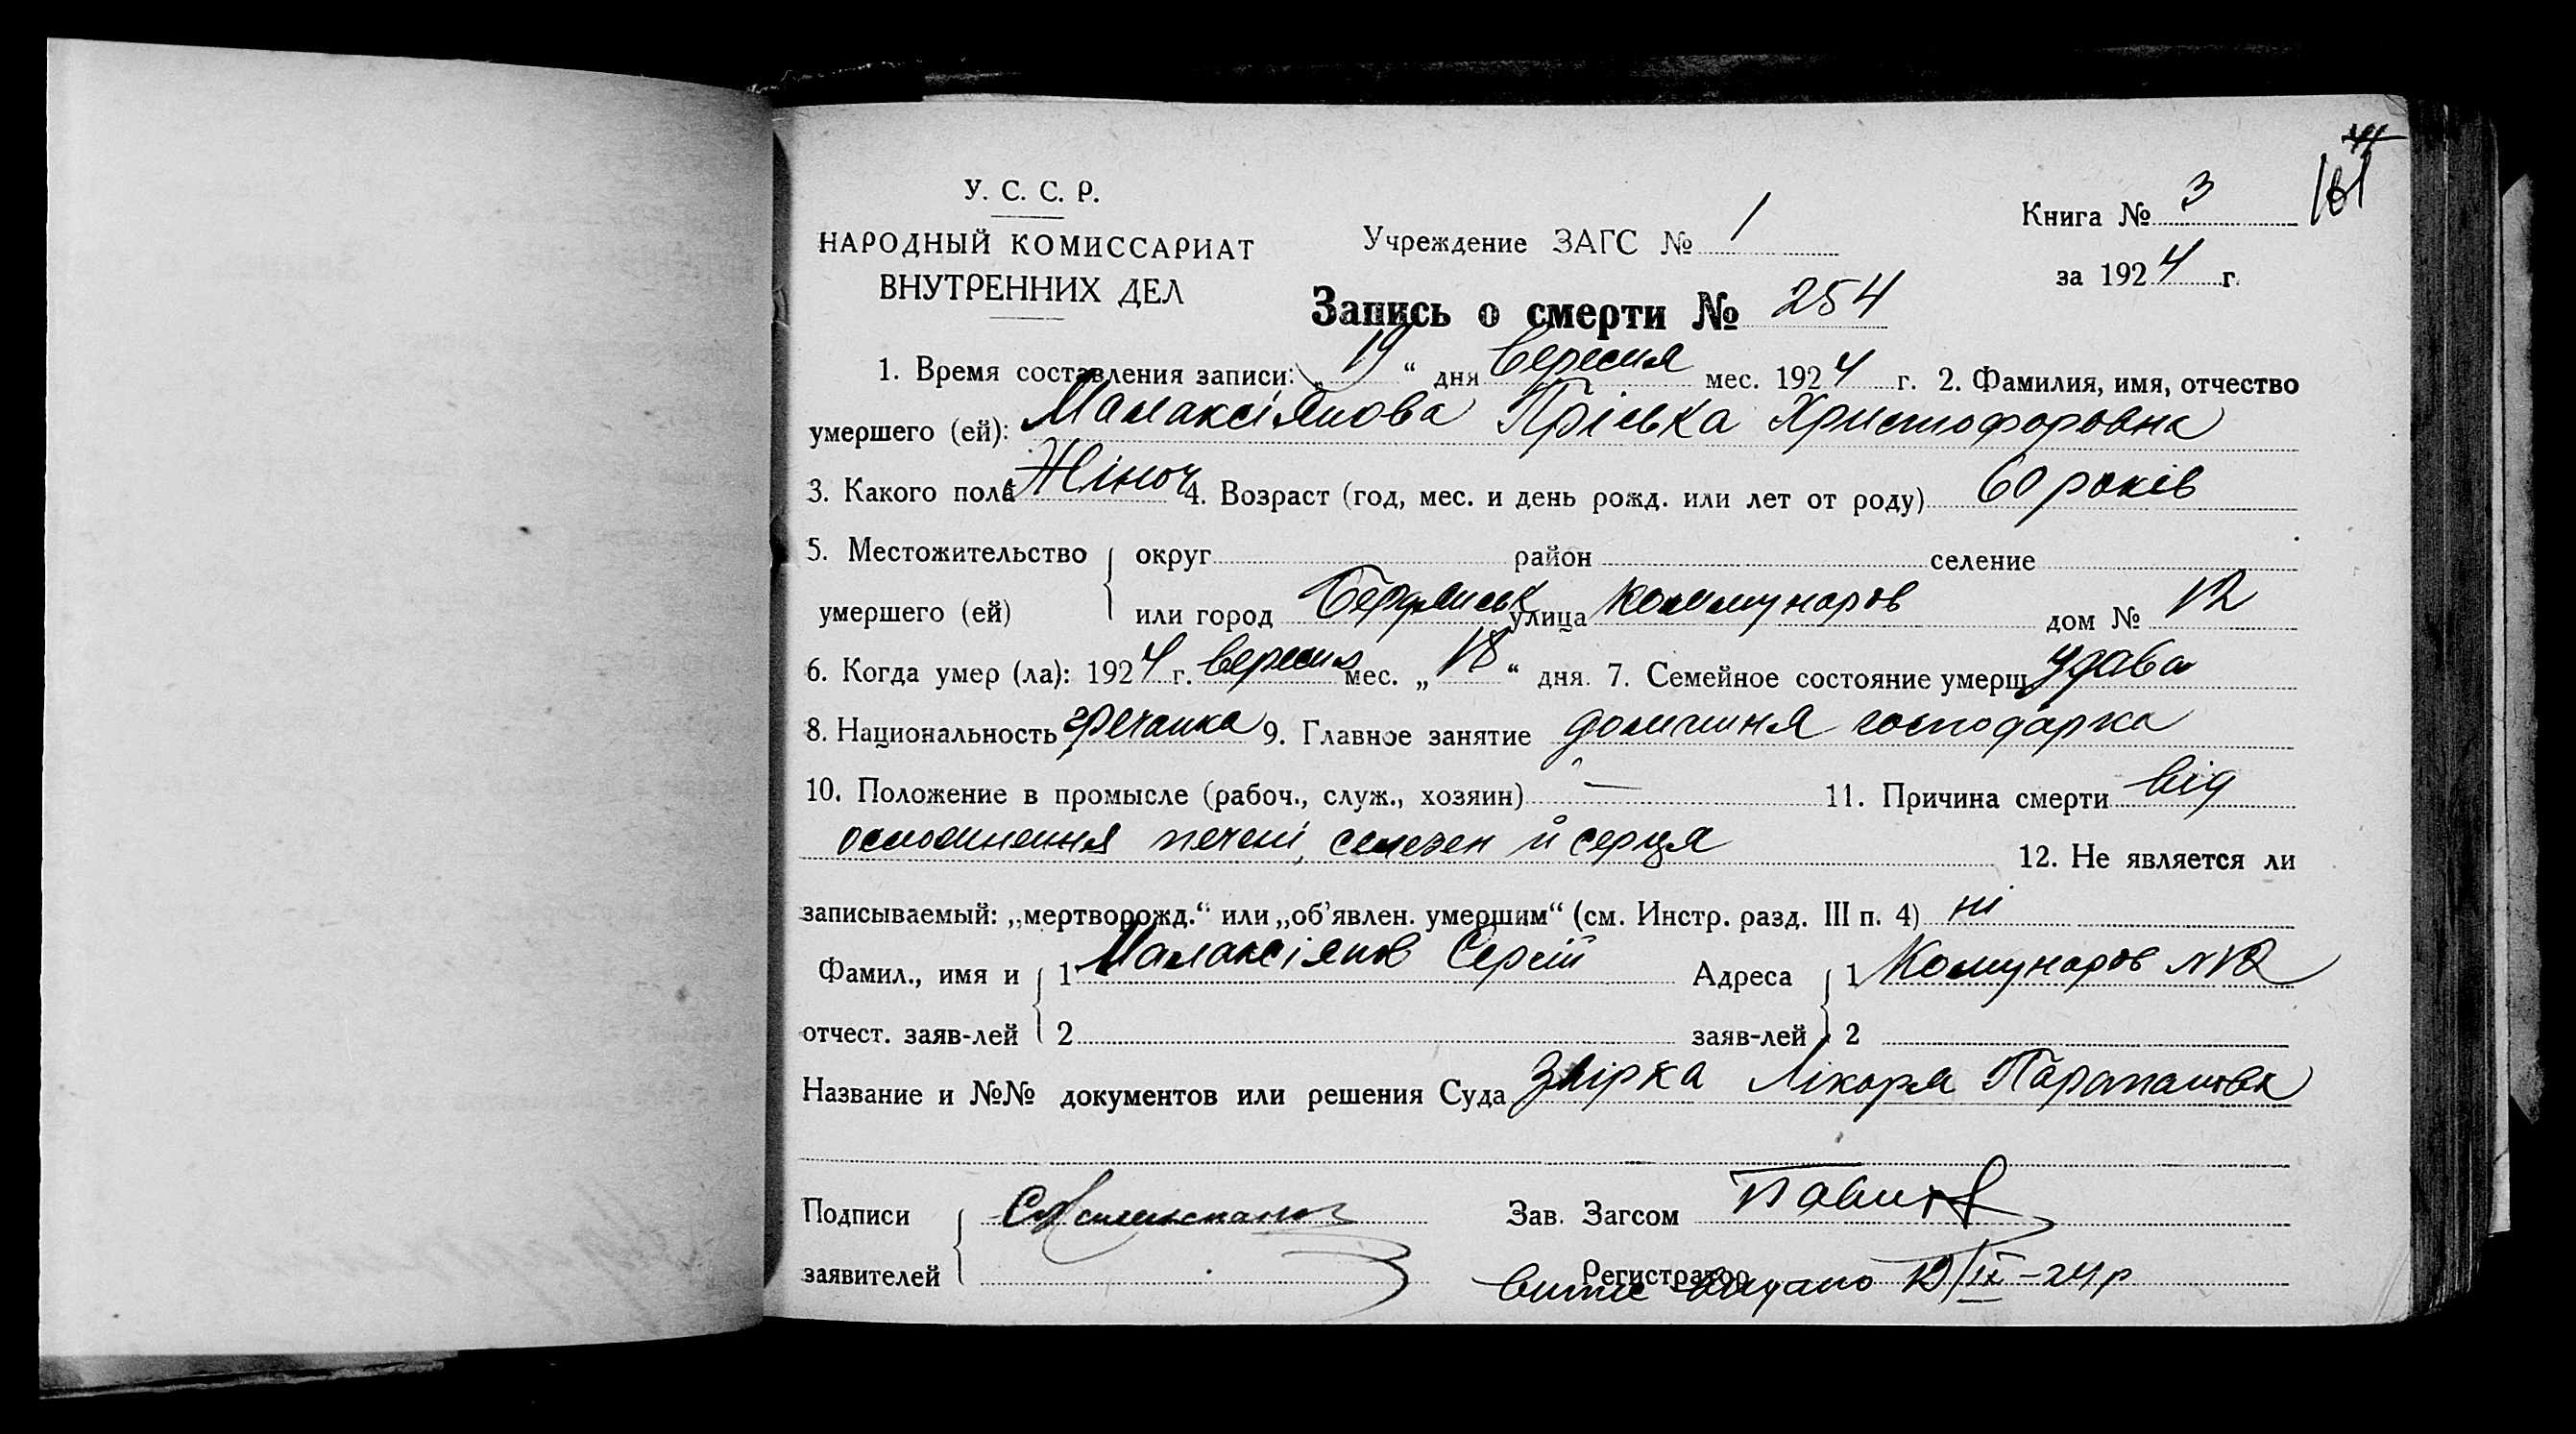 161
У. С. С. Р.
НАРОДНЫЙ КОМИССАРИАТ
ВНУТРЕННИХ ДЕЛ
Учреждение ЗАГС № 1
Книга № 3
за 1924 г.
Запись о смерти № 254
1. Время составления записи: „19“ дня вересня мес. 1924 г. 2. Фамилия, имя, отчество
умершего (ей): Малаксіянова Пріська Христофоровна
3. Какого пола Жіноч 4. Возраст (год, мес. и день рожд. или лет от роду) 60 років
5. Местожительство округ район селение
умершего (ей) или город Бердянськ улица Коммунаров дом № 12
6. Когда умер (ла): 1924 г. вересня мес. „18“ дня. 7. Семейное состояние умерш удова
8. Национальность гречанка 9. Главное занятие домашня господарка
10. Положение в промысле (рабоч., служ., хозяин) — 11. Причина смерти від
печені, селезен й серця
12. Не является ли
записываемый: „мертворожд.“ или „об’явлен. умершим“ (см. Инстр. разд. III п. 4) ні
Фамил., имя и 1 Малаксіянов Сергій Адреса 1 Комунаров №12
отчест. заяв-лей 2 заяв-лей 2
Название и №№ документов или решения Суда Лікаря
Подписи Зав. Загсом
заявителей Регистратор
витяг видано 19/IX-24р